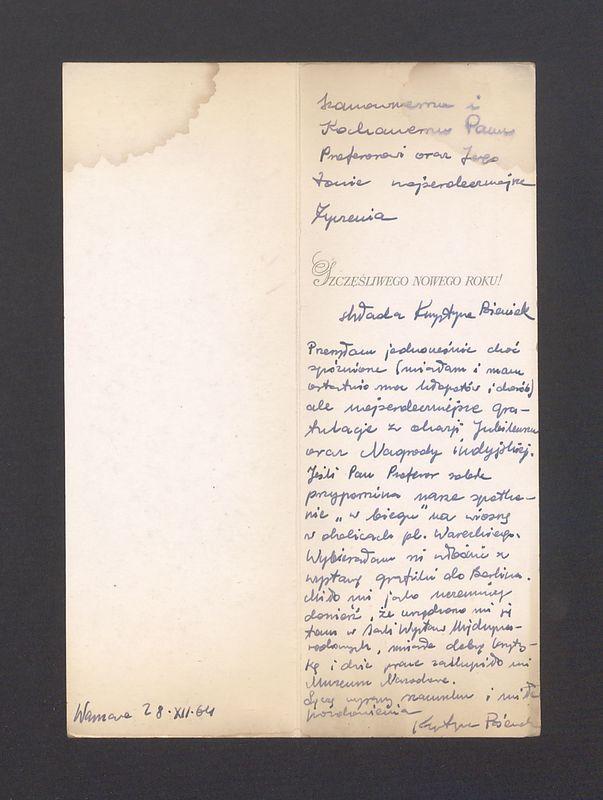 Szanownemu i
Kochanemu Panu
Profesorowi oraz Jego
Żonie najserdeczniejsze
Życzenia
SZCZĘŚLIWEGO NOWEGO ROKU!
składa Krystyna
Przesyłam jednocześnie choć
spóźnione (miałam i mam
ostatnio moc kłopotów i chorób)
ale najserdeczniejsze gra-
tulacje z okazji Jubileuszu
oraz Nagrody indyjskiej.
Jeśli Pan Profesor sobie
przypomina nasze spotka-
nie „w biegu" na wiosnę
w okolicach pl. Wareckiego.
Wybierałam się właśnie z
wystawą grafiki do Berlina.
Miło mi jako uczennicy
donieść, że urządzono mi ją
tam w Sali Wystaw Międzyna-
rodowych, miała dobrą kryty-
kę i dwie prace zakupiło mi
Muzeum Narodowe.
Łączę wyrazy szacunku i miłe
pozdrowienia
Krystyna
Warszawa 28.XII.64